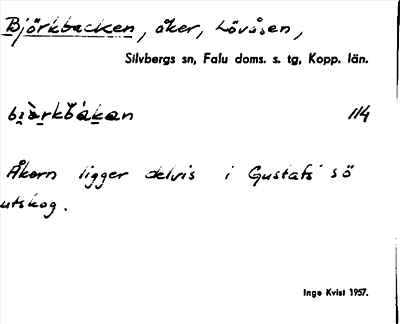 Björkbacken, åker, Lövåsen,
Silvbergs sn, Falu doms. s. tg, Kopp. län.
114
Åkern ligger delvis i Gustafs sö
utskog.
Inge Kvist 1957.